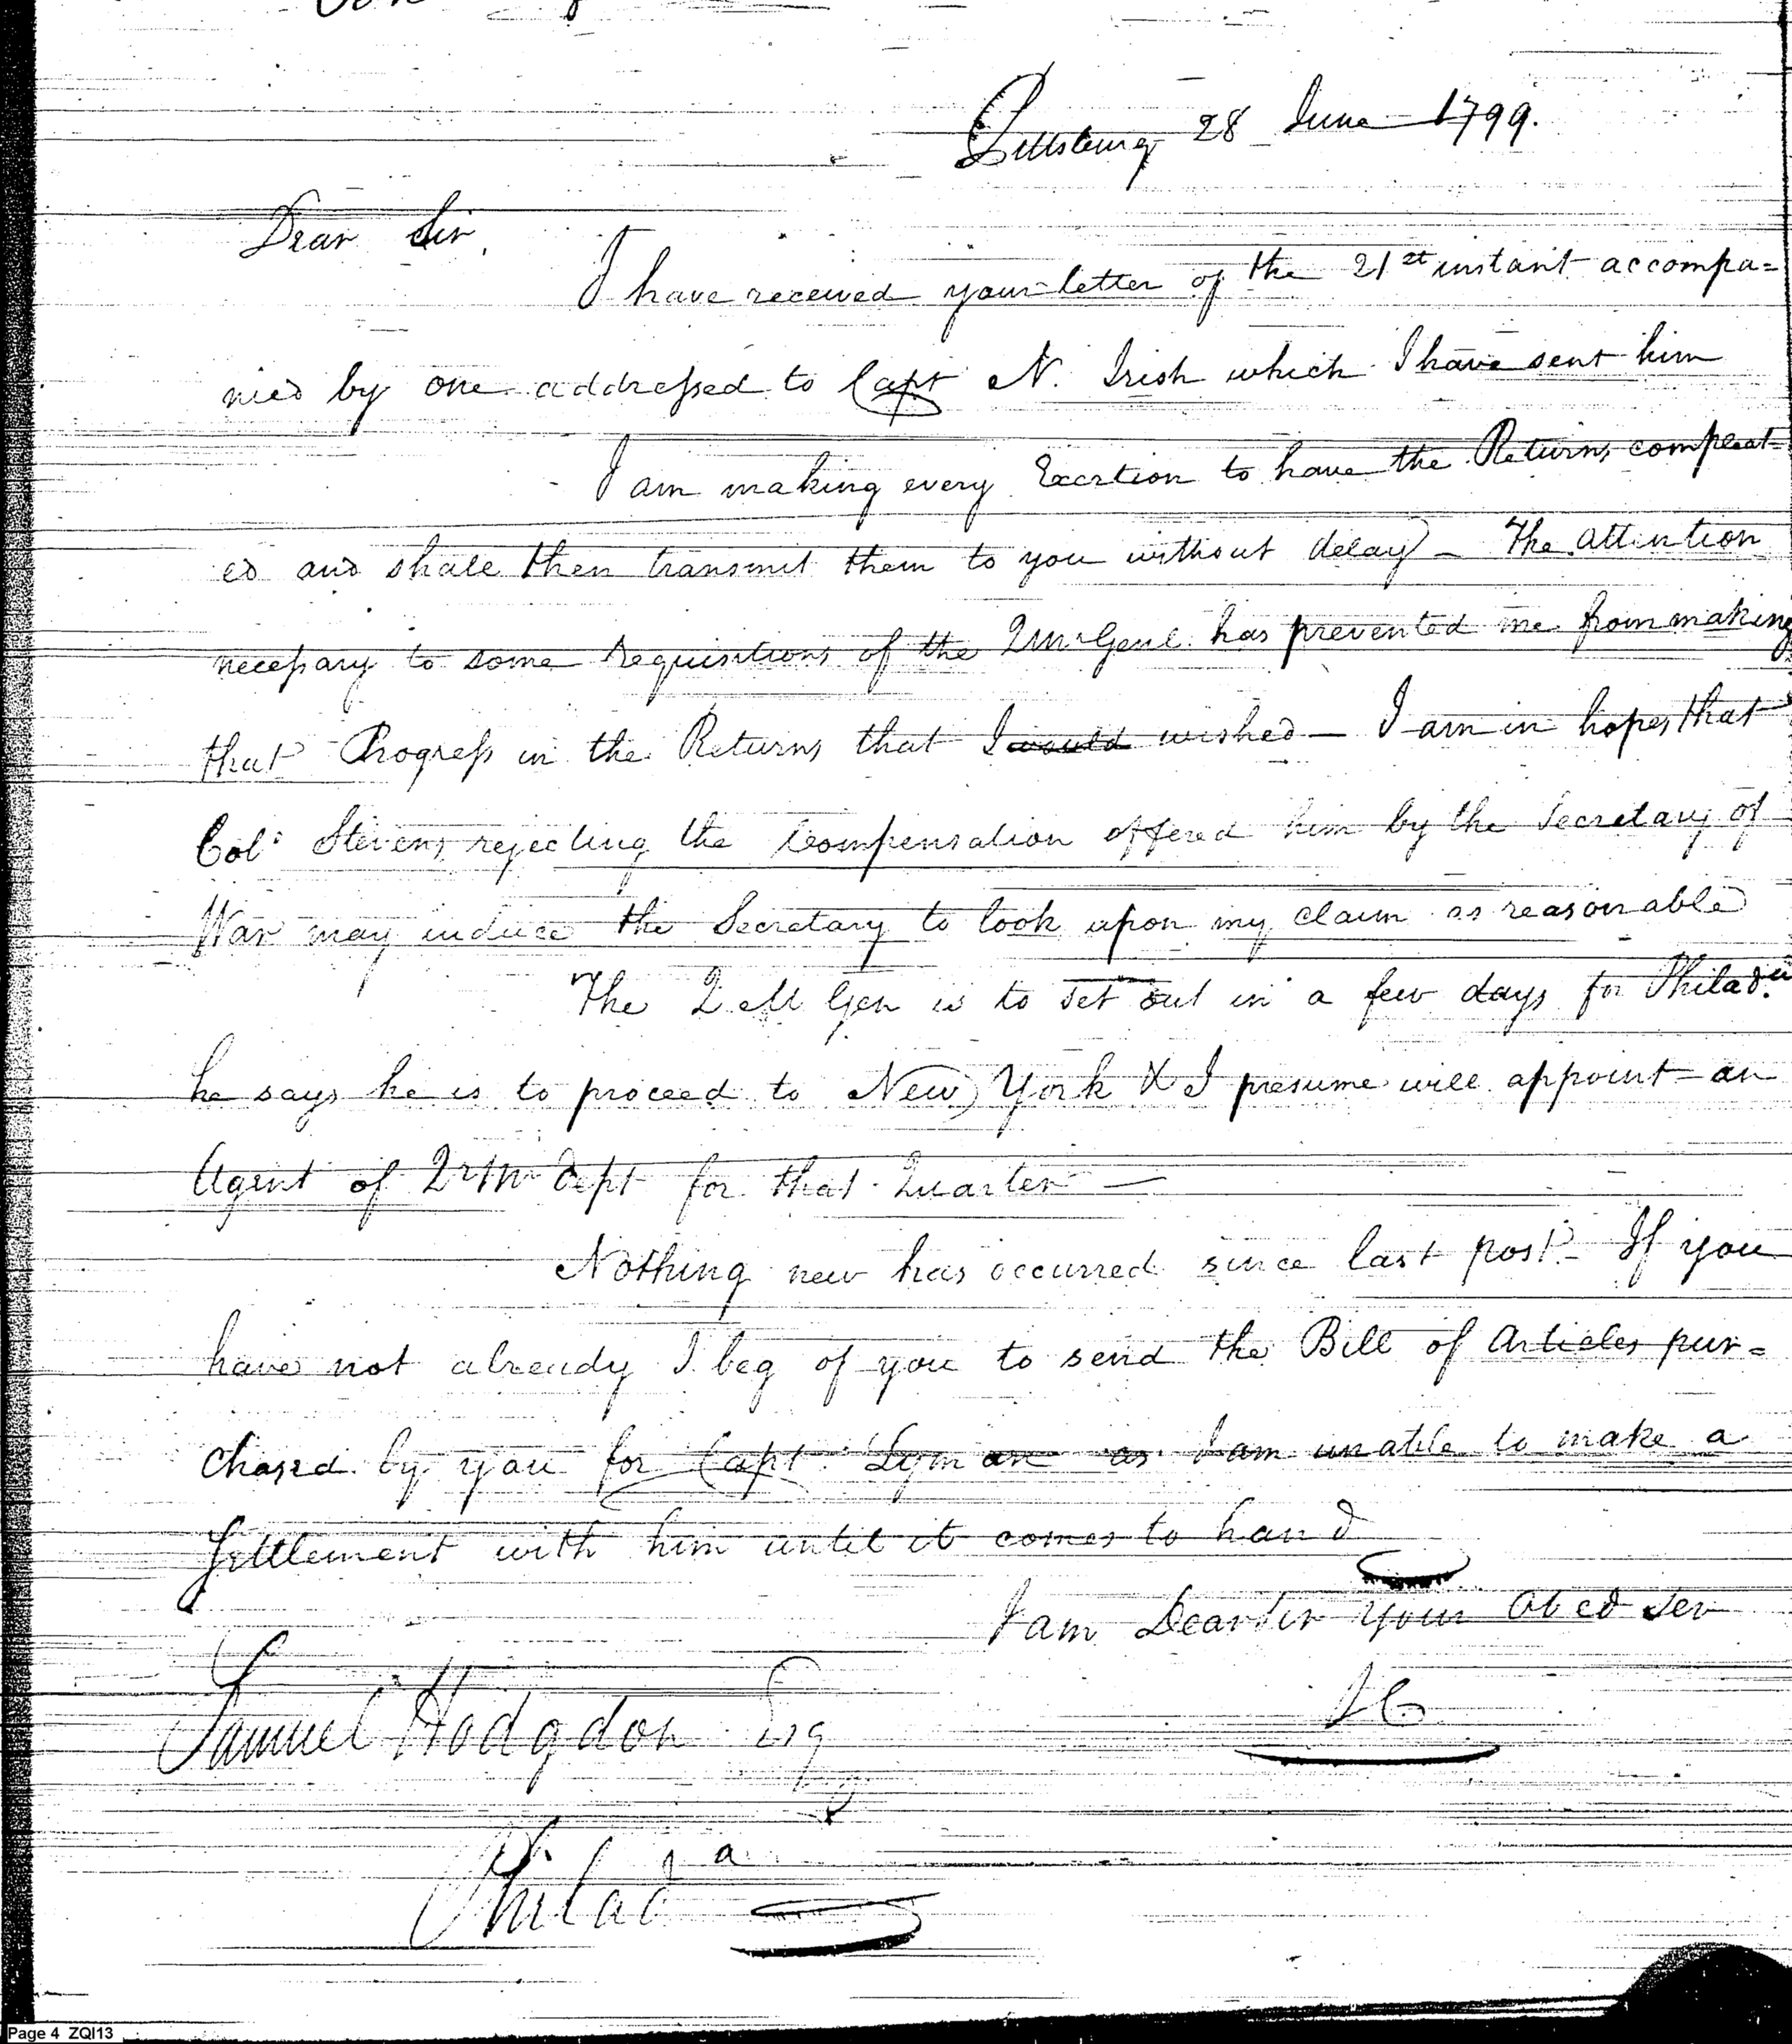 Pittsburg 28 June 1799.
Dear Sir,
I have received your letter of the 21st instant accompa=
nied by one addressed to Capt N. Irish which I have sent him
I am making every Exertion to have the Returns compleat-
ed and shall then transmit them to you without delay - The attention
necessary to some requisitions of the QMrGenl has prevented me from making
that Progress in the Returns that I would wished - I am in hopes that
Col: Stevens rejecting the Compensation offered him by the Secretary of
War may induce the Secretary to look upon my claim as reasonable
The Q M Gen is to set out in a few days for Philada
he says he is to proceed to New York & I presume will appoint an
Agent of QrMr Dept for that Quarter -
Nothing new has occurred since last post - If you
have not already I beg of you to send the Bill of Articles pur=
chased by you for Capt Lyman as I am unable to make a
Settlement with him until it comes to hand
I am Dear Sir your Obed Ser
Samuel Hodgdon Esq
Philada
Page 4 ZQI13